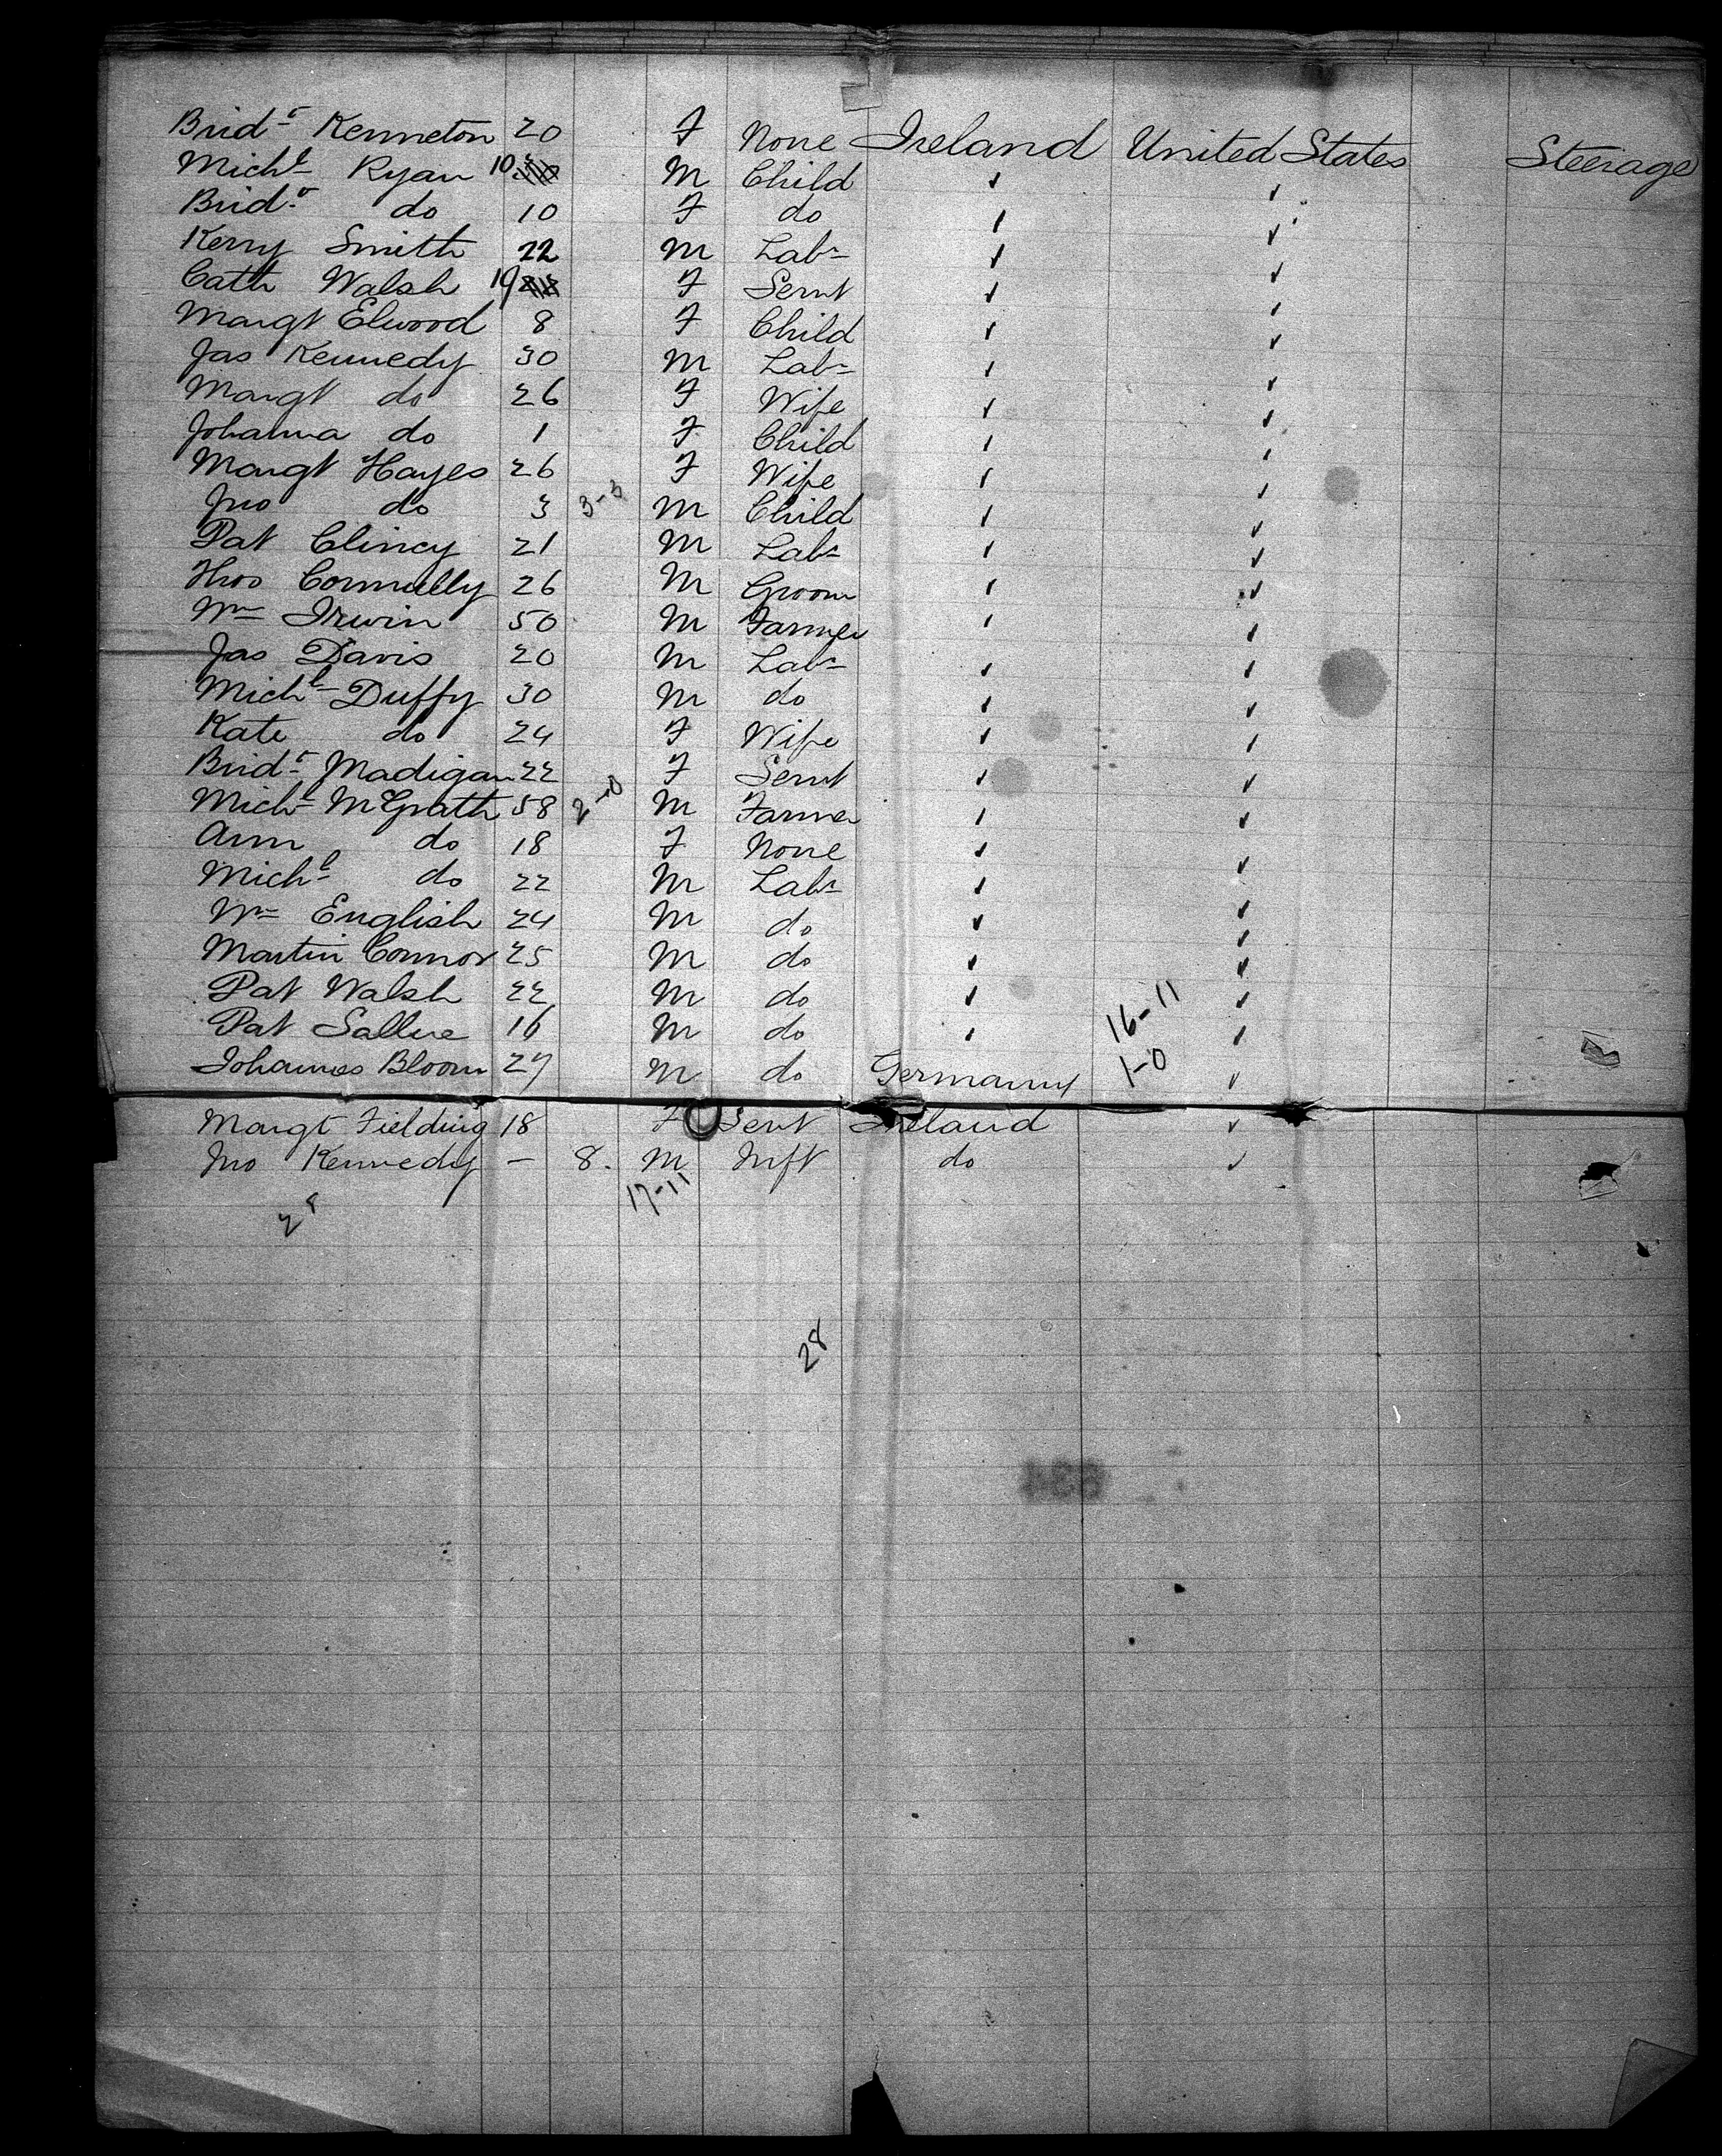 Bridt Kenneton 20 F None Ireland United States Steerage
Michl Ryan 10 M Child ✓ ✓
Bridt do 10 F do ✓ ✓
Kerry Smith 22 M Labr ✓ ✓
Cath Walsh 19 F Servt ✓ ✓
Margt Elwood 8 F Child ✓ ✓
Jas Kennedy 30 M Labr ✓ ✓
Margt do 26 F Wife ✓ ✓
Johanna do 1 F Child ✓ ✓
Margt Hayes 26 F Wife ✓ ✓
Jno do 3 3-3 M Child ✓ ✓
Pat Clincy 21 M Labr ✓ ✓
Thos Connully 26 M Groom ✓ ✓
Wm Irwin 50 M Farmer ✓ ✓
Jas Davis 20 M Labr ✓ ✓
Michl Duffy 30 M do ✓ ✓
Kate do 24 F Wife ✓ ✓
Bridt Madigan 22 F Servt ✓ ✓
Michl McGrath 58 2-0 M Farmer ✓ ✓
Ann do 18 F None ✓ ✓
Michl do 22 M Labr ✓ ✓
Wm English 24 M do ✓ ✓
Martin Connor 25 M do ✓ ✓
Pat Walsh 22 M do ✓ 16-11 ✓
Pat Sallue 16 M do ✓ ✓
Johannes Bloom 27 M do Germanny 1-0 ✓
Margt Fielding 18 F Servt Ireland ✓
Jno Kennedy - 8. M Inft do ✓
28 17-11
28